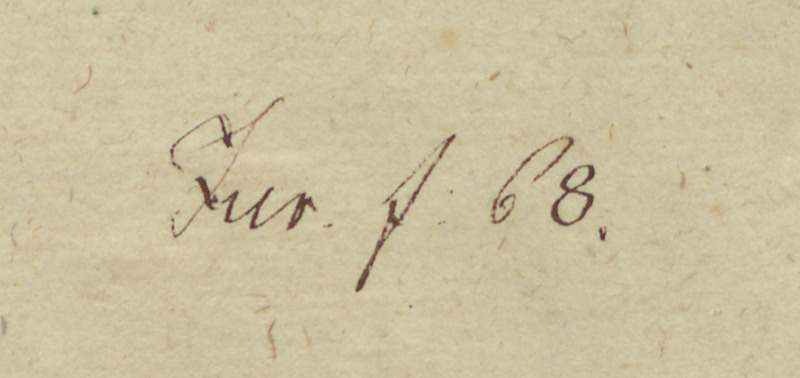 Jur. f. 68.